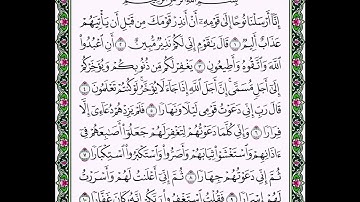 بِسْمِ ٱللَّهِ ٱلرَّحْمَٰنِ ٱلرَّحِيمِ
إِنَّآ أَرْسَلْنَا نُوحًا إِلَىٰ قَوْمِهِۦٓ أَنْ أَنذِرْ قَوْمَكَ مِن قَبْلِ أَن يَأْتِيَهُمْ
عَذَابٌ أَلِيمٌ ١ قَالَ يَٰقَوْمِ إِنِّى لَكُمْ نَذِيرٌ مُّبِينٌ ٢ أَنِ ٱعْبُدُوا۟
ٱللَّهَ وَٱتَّقُوهُ وَأَطِيعُونِ ٣ يَغْفِرْ لَكُم مِّن ذُنُوبِكُمْ وَيُؤَخِّرْكُمْ
إِلَىٰٓ أَجَلٍ مُّسَمًّى إِنَّ أَجَلَ ٱللَّهِ إِذَا جَآءَ لَا يُؤَخَّرُ لَوْ كُنتُمْ تَعْلَمُونَ ٤
قَالَ رَبِّ إِنِّى دَعَوْتُ قَوْمِى لَيْلًا وَنَهَارًا ٥ فَلَمْ يَزِدْهُمْ دُعَآءِىٓ إِلَّا
فِرَارًا ٦ وَإِنِّى كُلَّمَا دَعَوْتُهُمْ لِتَغْفِرَ لَهُمْ جَعَلُوٓا۟ أَصَٰبِعَهُمْ فِىٓ
ءَاذَانِهِمْ وَٱسْتَغْشَوْا۟ ثِيَابَهُمْ وَأَصَرُّوا۟ وَٱسْتَكْبَرُوا۟ ٱسْتِكْبَارًا ٧
ثُمَّ إِنِّى دَعَوْتُهُمْ جِهَارًا ٨ ثُمَّ إِنِّىٓ أَعْلَنتُ لَهُمْ وَأَسْرَرْتُ
لَهُمْ إِسْرَارًا ٩ فَقُلْتُ ٱسْتَغْفِرُوا۟ رَبَّكُمْ إِنَّهُۥ كَانَ غَفَّارًا ١٠